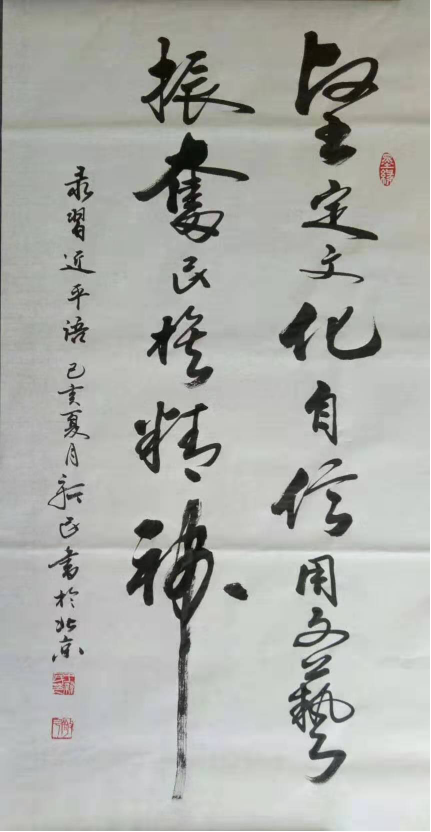 坚定文化自信用文艺
振奮民族精神
录習近平语 己亥夏月新民書於北京